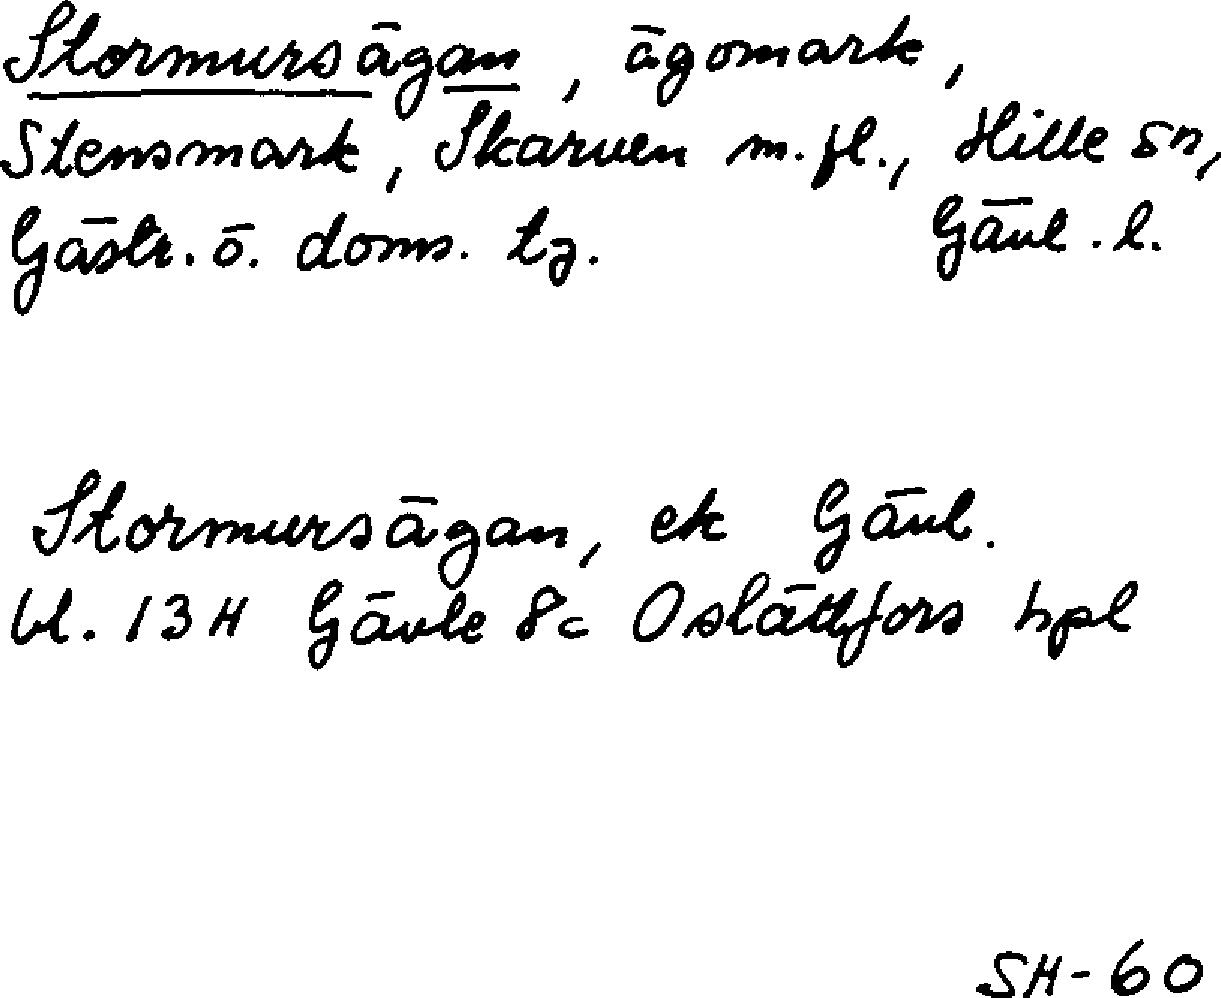 Stormursägan, ägomark,
Stensmark, Skarven m.fl., Hille sn,
Gästr. ö. doms. tg. Gävl. l.
Stormursägan, ek Gävl.
bl. 13H Gävle 8c Oslättfors hpl
SH-60